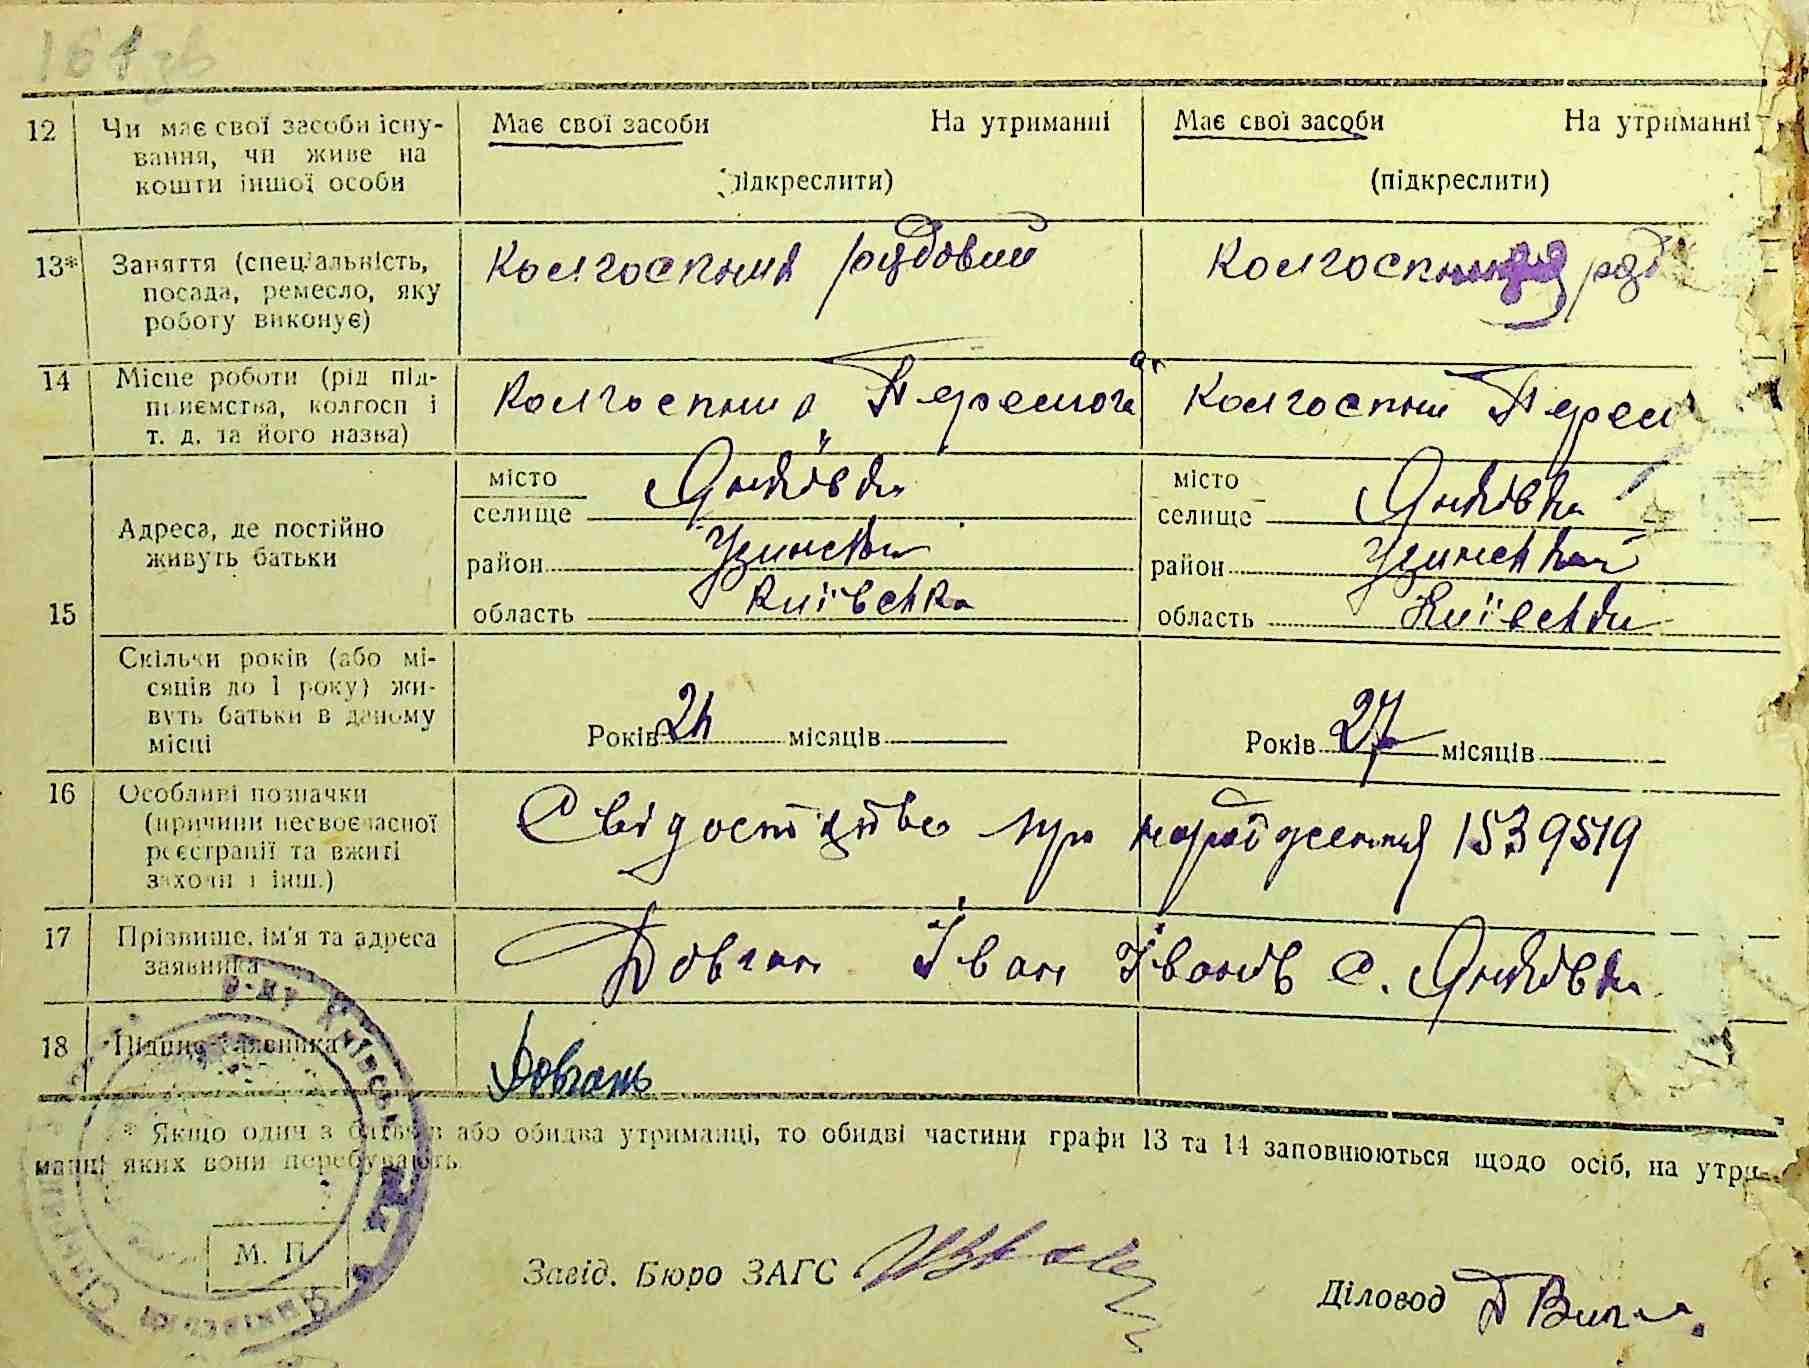 161 зв
12 Чи має свої засоби існу-
вання, чи живе на
кошти іншої особи
Має свої засоби На утриманні
(підкреслити)
Має свої засоби На утриманні
(підкреслити)
13* Заняття (спеціальність,
посада, ремесло, яку
роботу виконує)
Колгоспник рядовий
Колгоспниця ряд
14 Місце роботи (рід під-
приємства, колгосп і
т. д. та його назва)
Колгоспник Перемога
Колгоспни Перем
15 Адреса, де постійно
живуть батьки
місто
селище Янківка
район Узинськи
область Київська
місто
селище Янківка
район Узинський
область Київськи
Скільки років (або мі-
сяців до 1 року) жи-
вуть батьки в даному
місці
Років 24 місяців
Років 27 місяців
16 Особливі позначки
(причини несвоєчасної
реєстрації та вжиті
заходи і інш.)
Свідоцтво про народження 1539519
17 Прізвище, ім'я та адреса
заявника
Довган Іван Іванів с. Янківка
18 Підпис заявника
Довгань
* Якщо один з батьків або обидва утриманці, то обидві частини графи 13 та 14 заповнюються щодо осіб, на утри-
манні яких вони перебувають
М. П.
Завід. Бюро ЗАГС
Діловод
р-ну Київсь
Янківська Сільрада